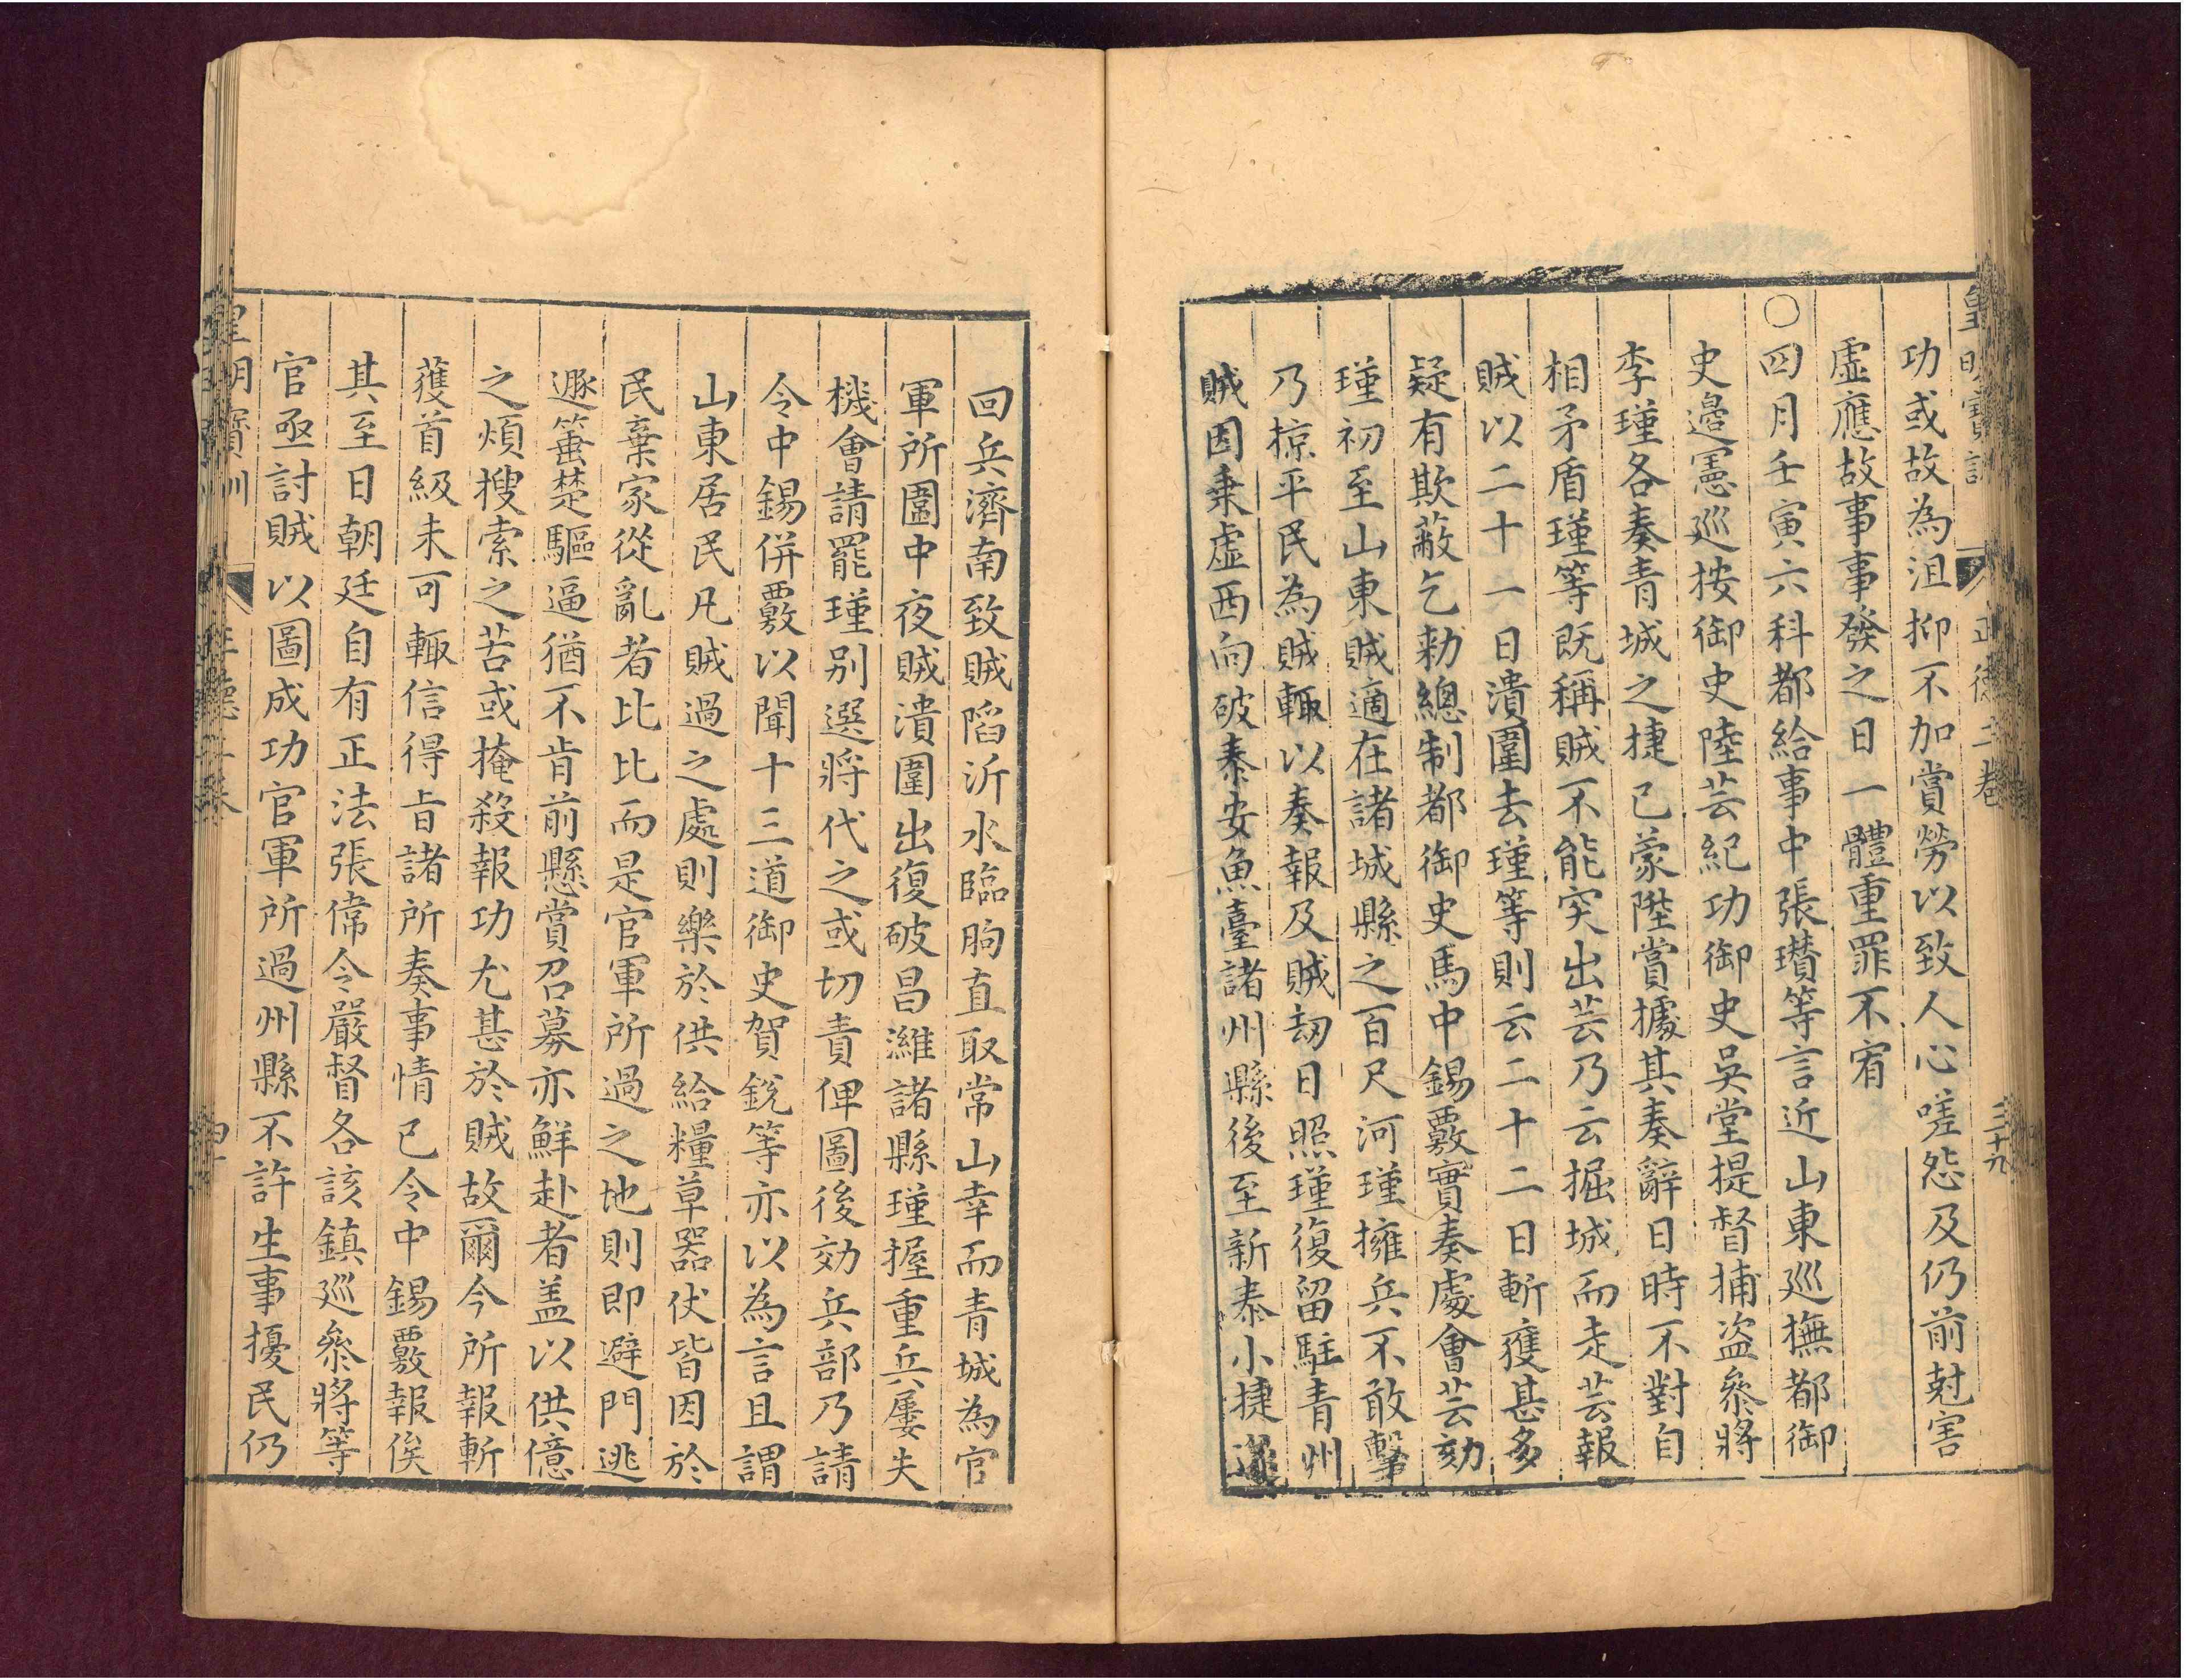 皇明寶訓 正德二卷 三十九
功或故為沮抑不加賞勞以致人心嗟怨及仍前尅害
虛應故事事發之日一體重罪不宥
○四月壬寅六科都給事中張瓚等言近山東巡撫都御
史邊憲巡按御史陸芸紀功御史吳堂提督捕盗叅將
李瑾各奏青城之捷已蒙陞賞據其奏辭日時不對自
相矛盾瑾等既稱賊不能突出芸乃云掘城而走芸報
賊以二十一日潰圍去瑾等則云二十二日斬獲甚多
疑有欺蔽乞勑總制都御史馬中錫覈實奏處會芸劾
瑾初至山東賊適在諸城縣之百尺河瑾擁兵不敢擊
乃掠平民為賊輒以奏報及賊刼日照瑾復留駐青州
賊因乗虛西向破泰安魚臺諸州縣後至新泰小捷遂
回兵濟南致賊陷沂水臨朐直取常山幸而青城為官
軍所圍中夜賊潰圍出復破昌濰諸縣瑾握重兵屢失
機會請罷瑾别選將代之或切責俾圖後効兵部乃請
令中錫併覈以聞十三道御史賀銳等亦以為言且謂
山東居民凡賊過之處則樂於供給糧草器仗皆因於
民棄家從亂者比比而是官軍所過之地則即避門逃
遯箠楚驅逼猶不肯前懸賞召募亦鮮赴者盖以供億
之煩搜索之苦或掩殺報功尤甚於賊故爾今所報斬
獲首級未可輒信得旨諸所奏事情已令中錫覈報俟
其至日朝廷自有正法張偉令嚴督各該鎮巡叅將等
官亟討賊以圖成功官軍所過州縣不許生事擾民仍
皇明寶訓 正德二卷 四十